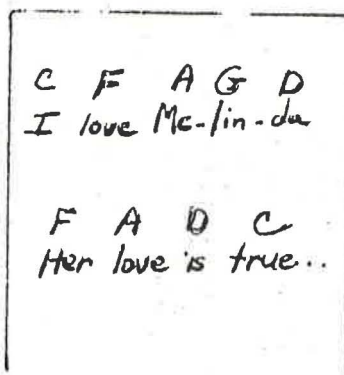 C F A G D
I love Me-lin-da
F A D C
Her love is true..